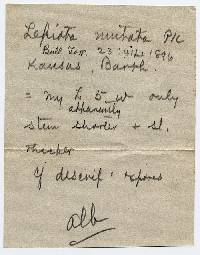 Lepiota mutata Pk
Bull Torr. 23: 412. 1896
Kansas, Barth.
= my L. 5 w only
apparently
stem shorter + sl.
thicker
Cf descrip.